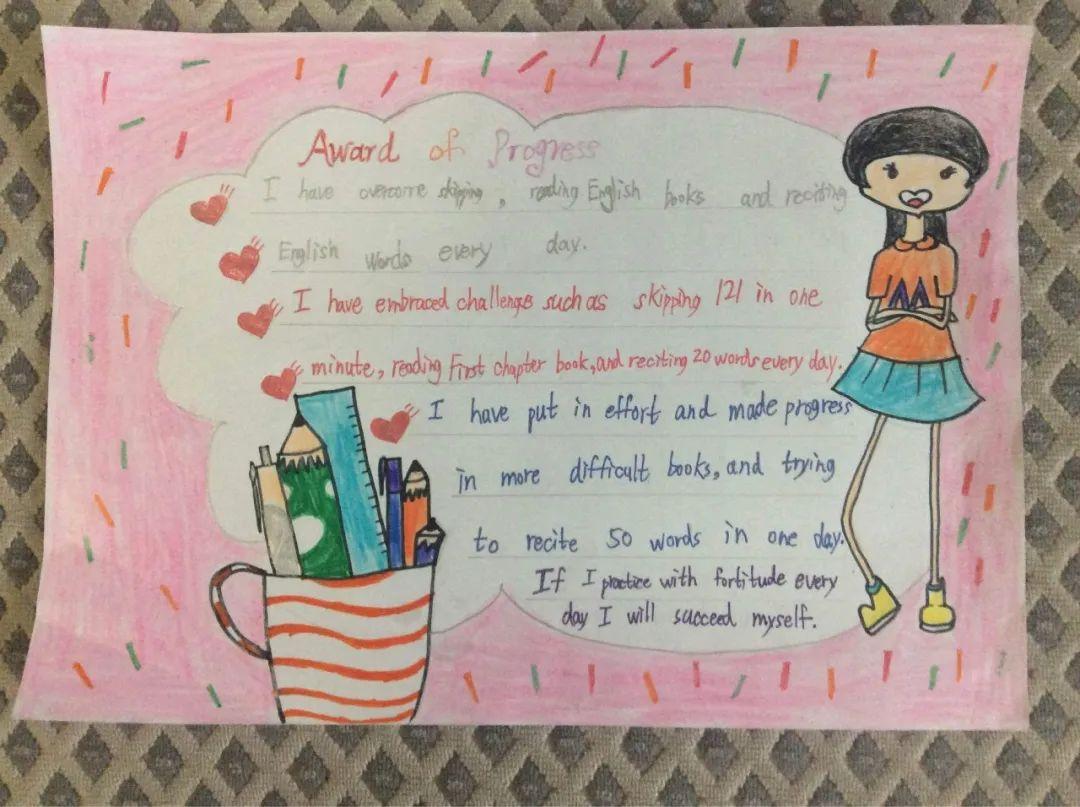 Award of Progress
I have overcome skipping, reading English books and reciting
English words every day.
I have embraced challenges such as skipping 121 in one
minute, reading First chapter book, and reciting 20 words every day.
I have put in effort and made progress
in more difficult books, and trying
to recite 50 words in one day.
If I practice with fortitude every
day I will succeed myself.